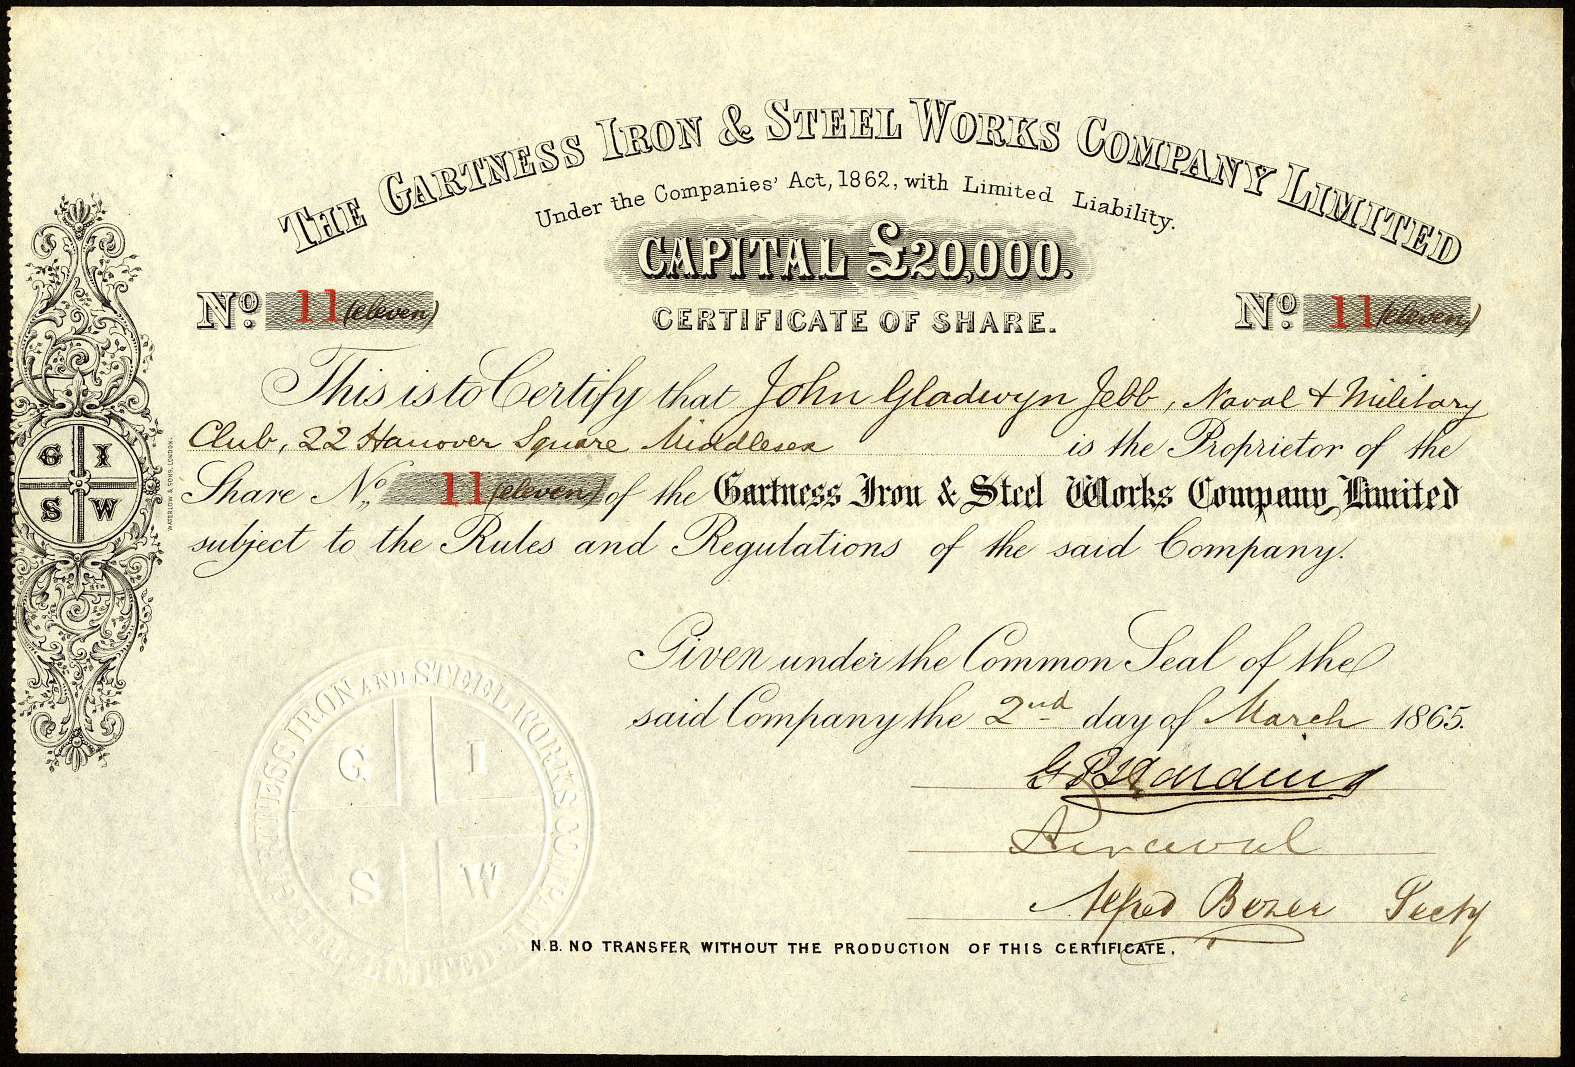 THE GARTNESS IRON & STEEL WORKS COMPANY LIMITED
Under the Companies' Act, 1862, with Limited Liability.
CAPITAL £20,000.
No. 11 (eleven)
CERTIFICATE OF SHARE.
No. 11 (eleven)
This is to Certify that John Gladwyn Jebb, Naval & Military
Club, 22 Hanover Square Middlesex is the Proprietor of the
Share No. 11 (eleven) of the Gartness Iron & Steel Works Company, Limited
subject to the Rules and Regulations of the said Company.
G I
S W
WATERLOW & SONS. LONDON.
Given under the Common Seal of the
said Company the 2nd day of March 1865.
G P Harding
Perceval
Alfred Secty
THE GARTNESS IRON AND STEEL WORKS COMPANY LIMITED
G I
S W
N.B. NO TRANSFER WITHOUT THE PRODUCTION OF THIS CERTIFICATE.